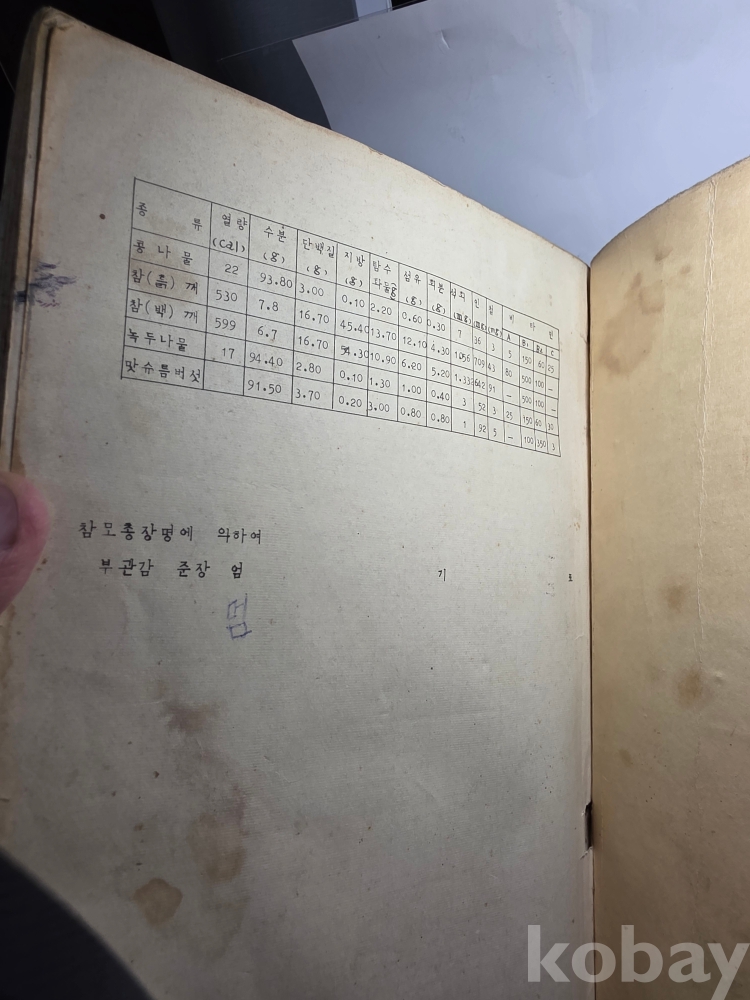 종 류 열량 수분 단백질 지방 탄수 섬유 회분 석회 인 철 비 타 민
(Cal) (g) (g) (g) (g) (g) (mg) (mg) (mg) A B₁ B₂ C
콩 나 물 22 93.80 3.00 0.10 2.20 0.60 0.30 7 36 3 5 150 60 25
참(흙) 깨 530 7.8 16.70 45.40 13.70 12.10 4.30 1056 709 43 80 500 100 —
참(백) 깨 599 6.7 16.70 54.30 10.90 6.20 5.20 1.332 642 91 — 500 100 —
녹두나물 17 94.40 2.80 0.10 1.30 1.00 0.40 3 52 3 25 150 60 30
맛슈름버섯 91.50 3.70 0.20 3.00 0.80 0.80 1 92 5 — 100 350 3
참모총장명에 의하여
부관감 준장 엄 기 표
멈
kobay